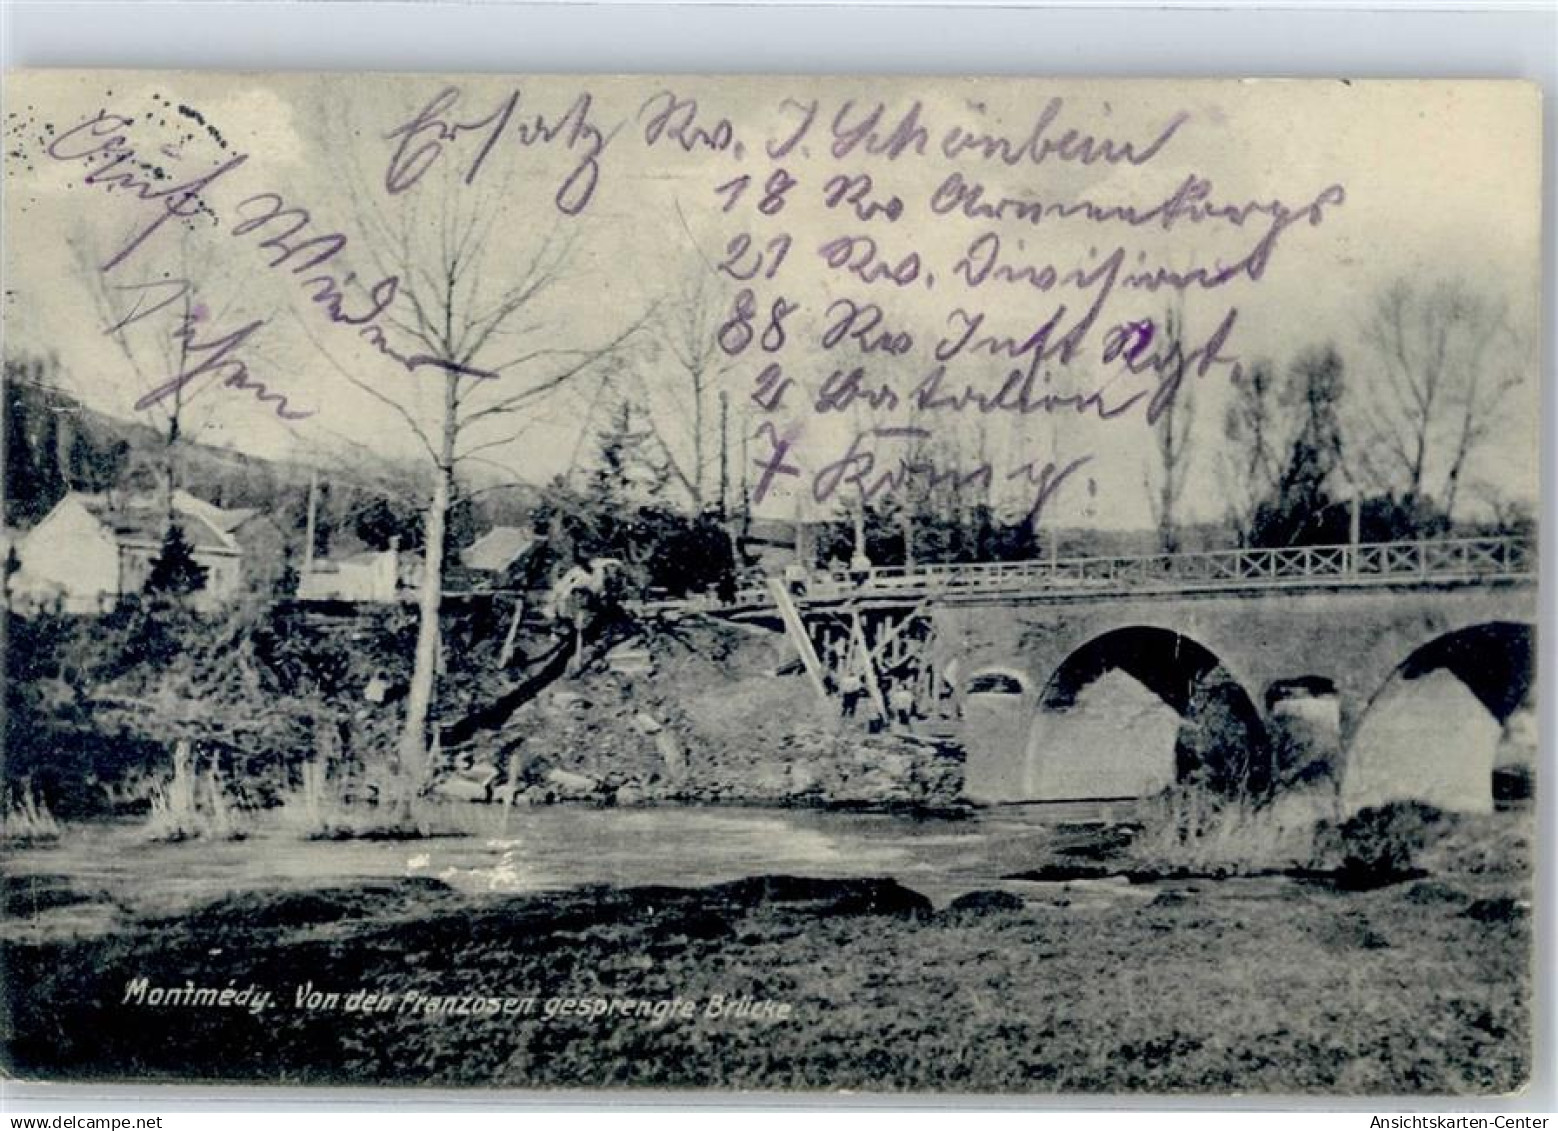 Auf
Wider
sehen
Ersatz Rv. J. Schönbein
18 Rv Armenkorps
21 Rv. Division
88 Rv Inft Rgt.
2 Batalion
7 Komy.
Montmédy. Von den Franzosen gesprengte Brücke
www.delcampe.net
Ansichtskarten-Center